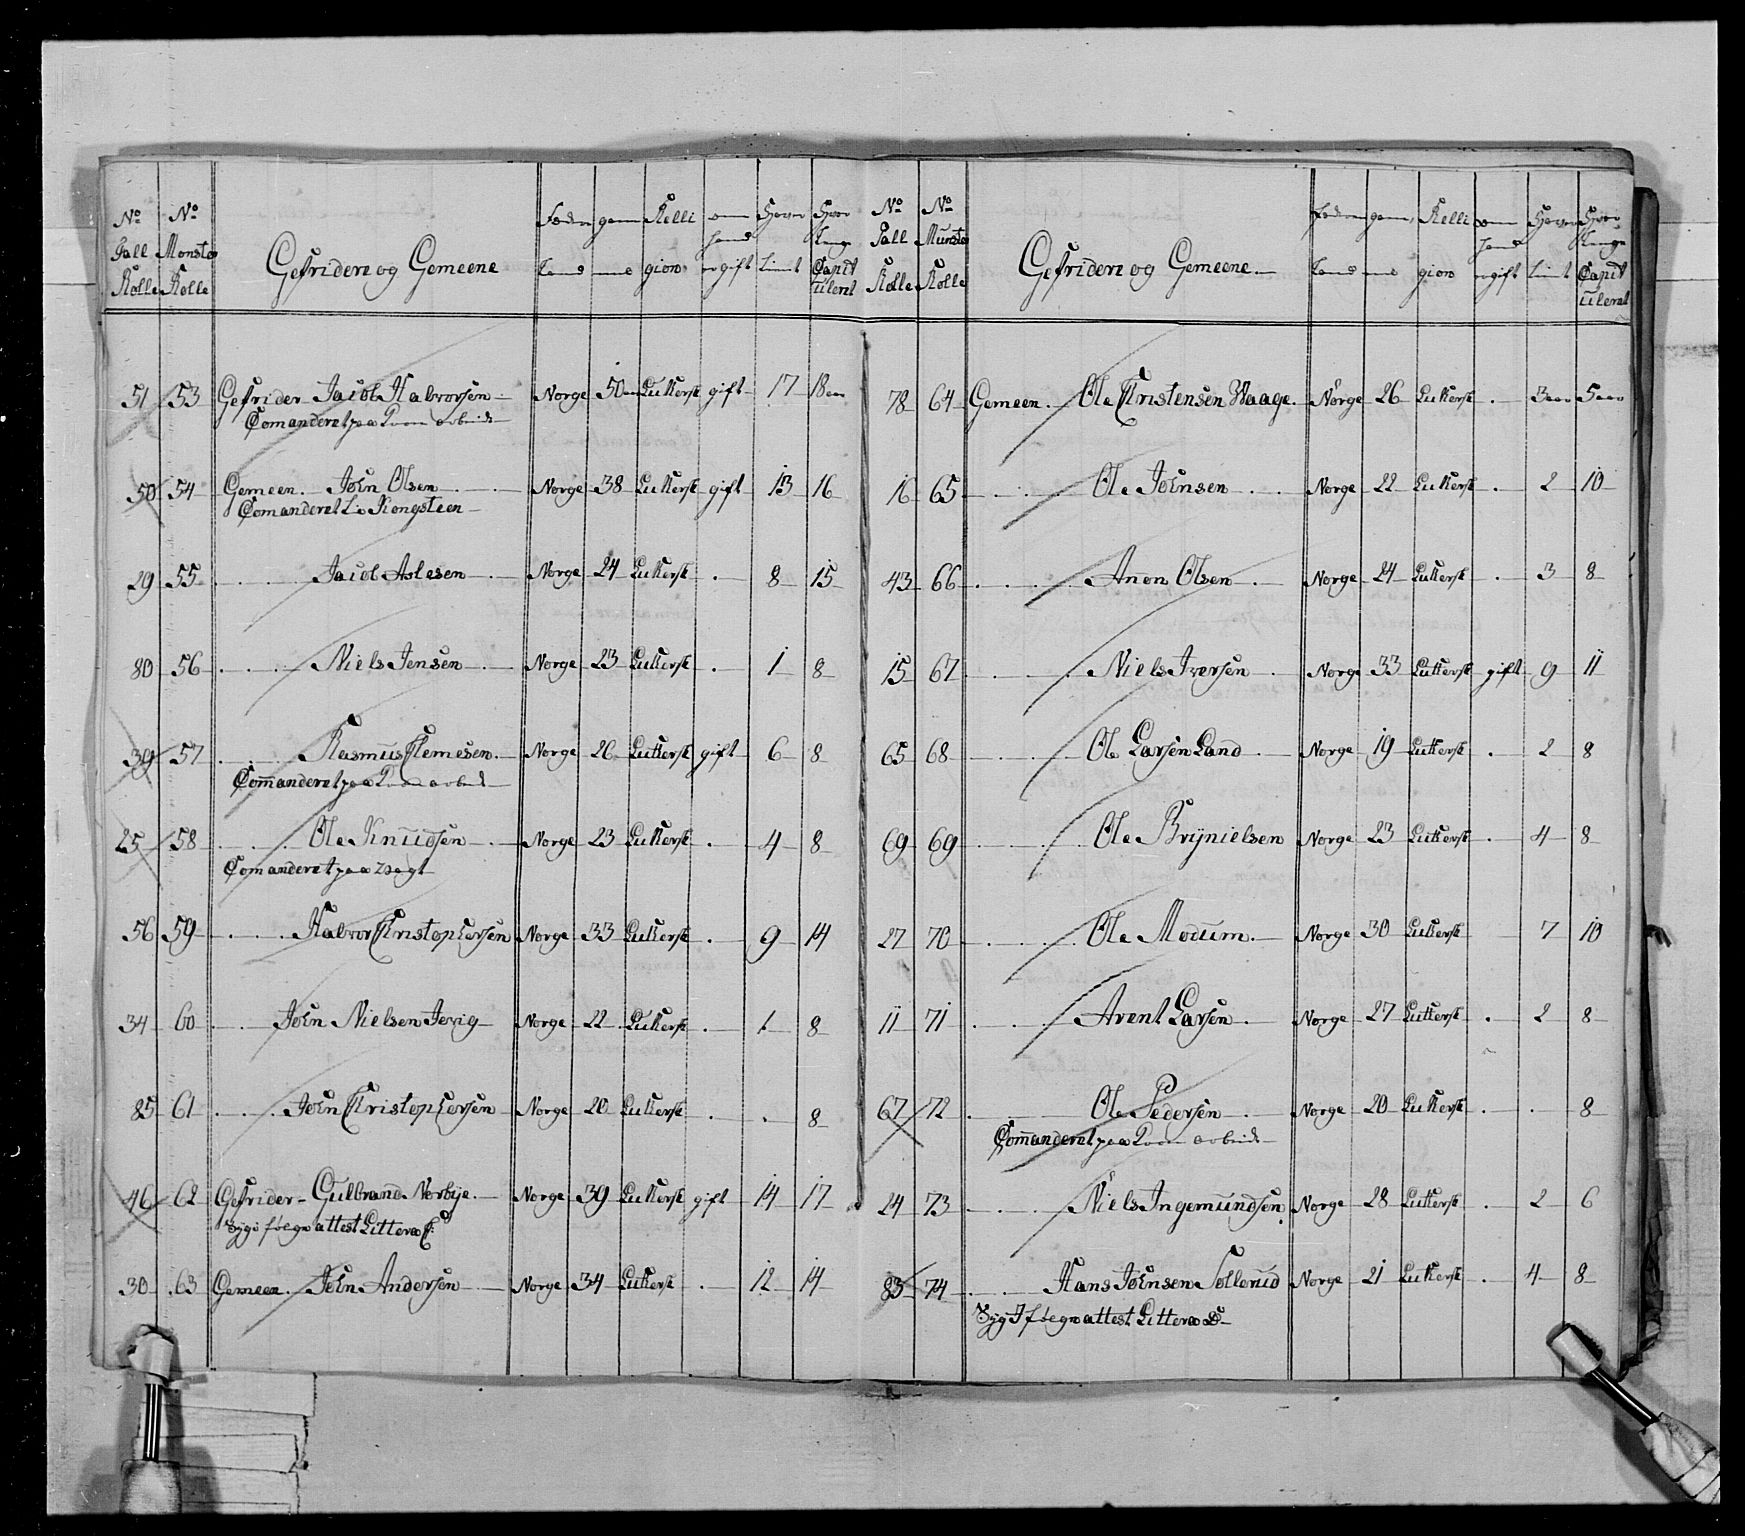 No No Gefridere og Gemeene Føder gam Relli om Hvor Hvor
Rall Monster hand Længe
Rolle Rolle Land me gion er gift tient Capit uleret
51 53 Gefrider Jacob Halvorsen Norge 50 Luthersk gift 17 18
Comanderet paa arbeide
50 54 Gemeen John Olsen Norge 38 Luthersk gift 13 16
Comanderet Kongsteen
29 55 Jacob Aslesen Norge 24 Luthersk . 8 15
80 56 Niels Jensen Norge 23 Luthersk . 1 8
39 57 Rasmus Clemesen Norge 26 Luthersk gift 6 8
Comanderet paa arbeide
25 58 Ole Knudsen Norge 23 Luthersk . 4 8
Comanderet paa Vagt
56 59 Halvor Christophersen Norge 33 Luthersk . 9 14
34 60 John Nielsen Norge 22 Luthersk . 1 8
85 61 John Christophersen Norge 20 Luthersk . . 8
46 62 Gefrider Gulbrand Norbye Norge 39 Luthersk gift 14 17
Syg ifølge attest Littera
30 63 Gemeen John Andersen Norge 34 Luthersk . 12 14
No No Gefridere og Gemeene Føder gam Relli om Hvor Hvor
Rall Munster hand Længe
Rolle Rolle Land me gion er gift tient Capit uleret
78 64 Gemeen Ole Christensen Waage Norge 26 Luthersk . 3 5
16 65 Ole Johnsen Norge 22 Luthersk . 2 10
43 66 Anon Olsen Norge 24 Luthersk . 3 8
15 67 Niels Iversen Norge 33 Luthersk gift 9 11
65 68 Ole Larsen Land Norge 19 Luthersk . 2 8
69 69 Ole Brynielsen Norge 23 Luthersk . 4 8
27 70 Ole Modum Norge 30 Luthersk 7 10
11 71 Arent Larsen Norge 27 Luthersk . 2 8
67 72 Ole Pedersen Norge 20 Luthersk . . 8
Comanderet paa arbeide
24 73 Niels Ingemundsen Norge 28 Luthersk . 2 6
83 74 Hans Johnsen Sollerud Norge 21 Luthersk . 4 8
Syg Ifølge attest Littera D